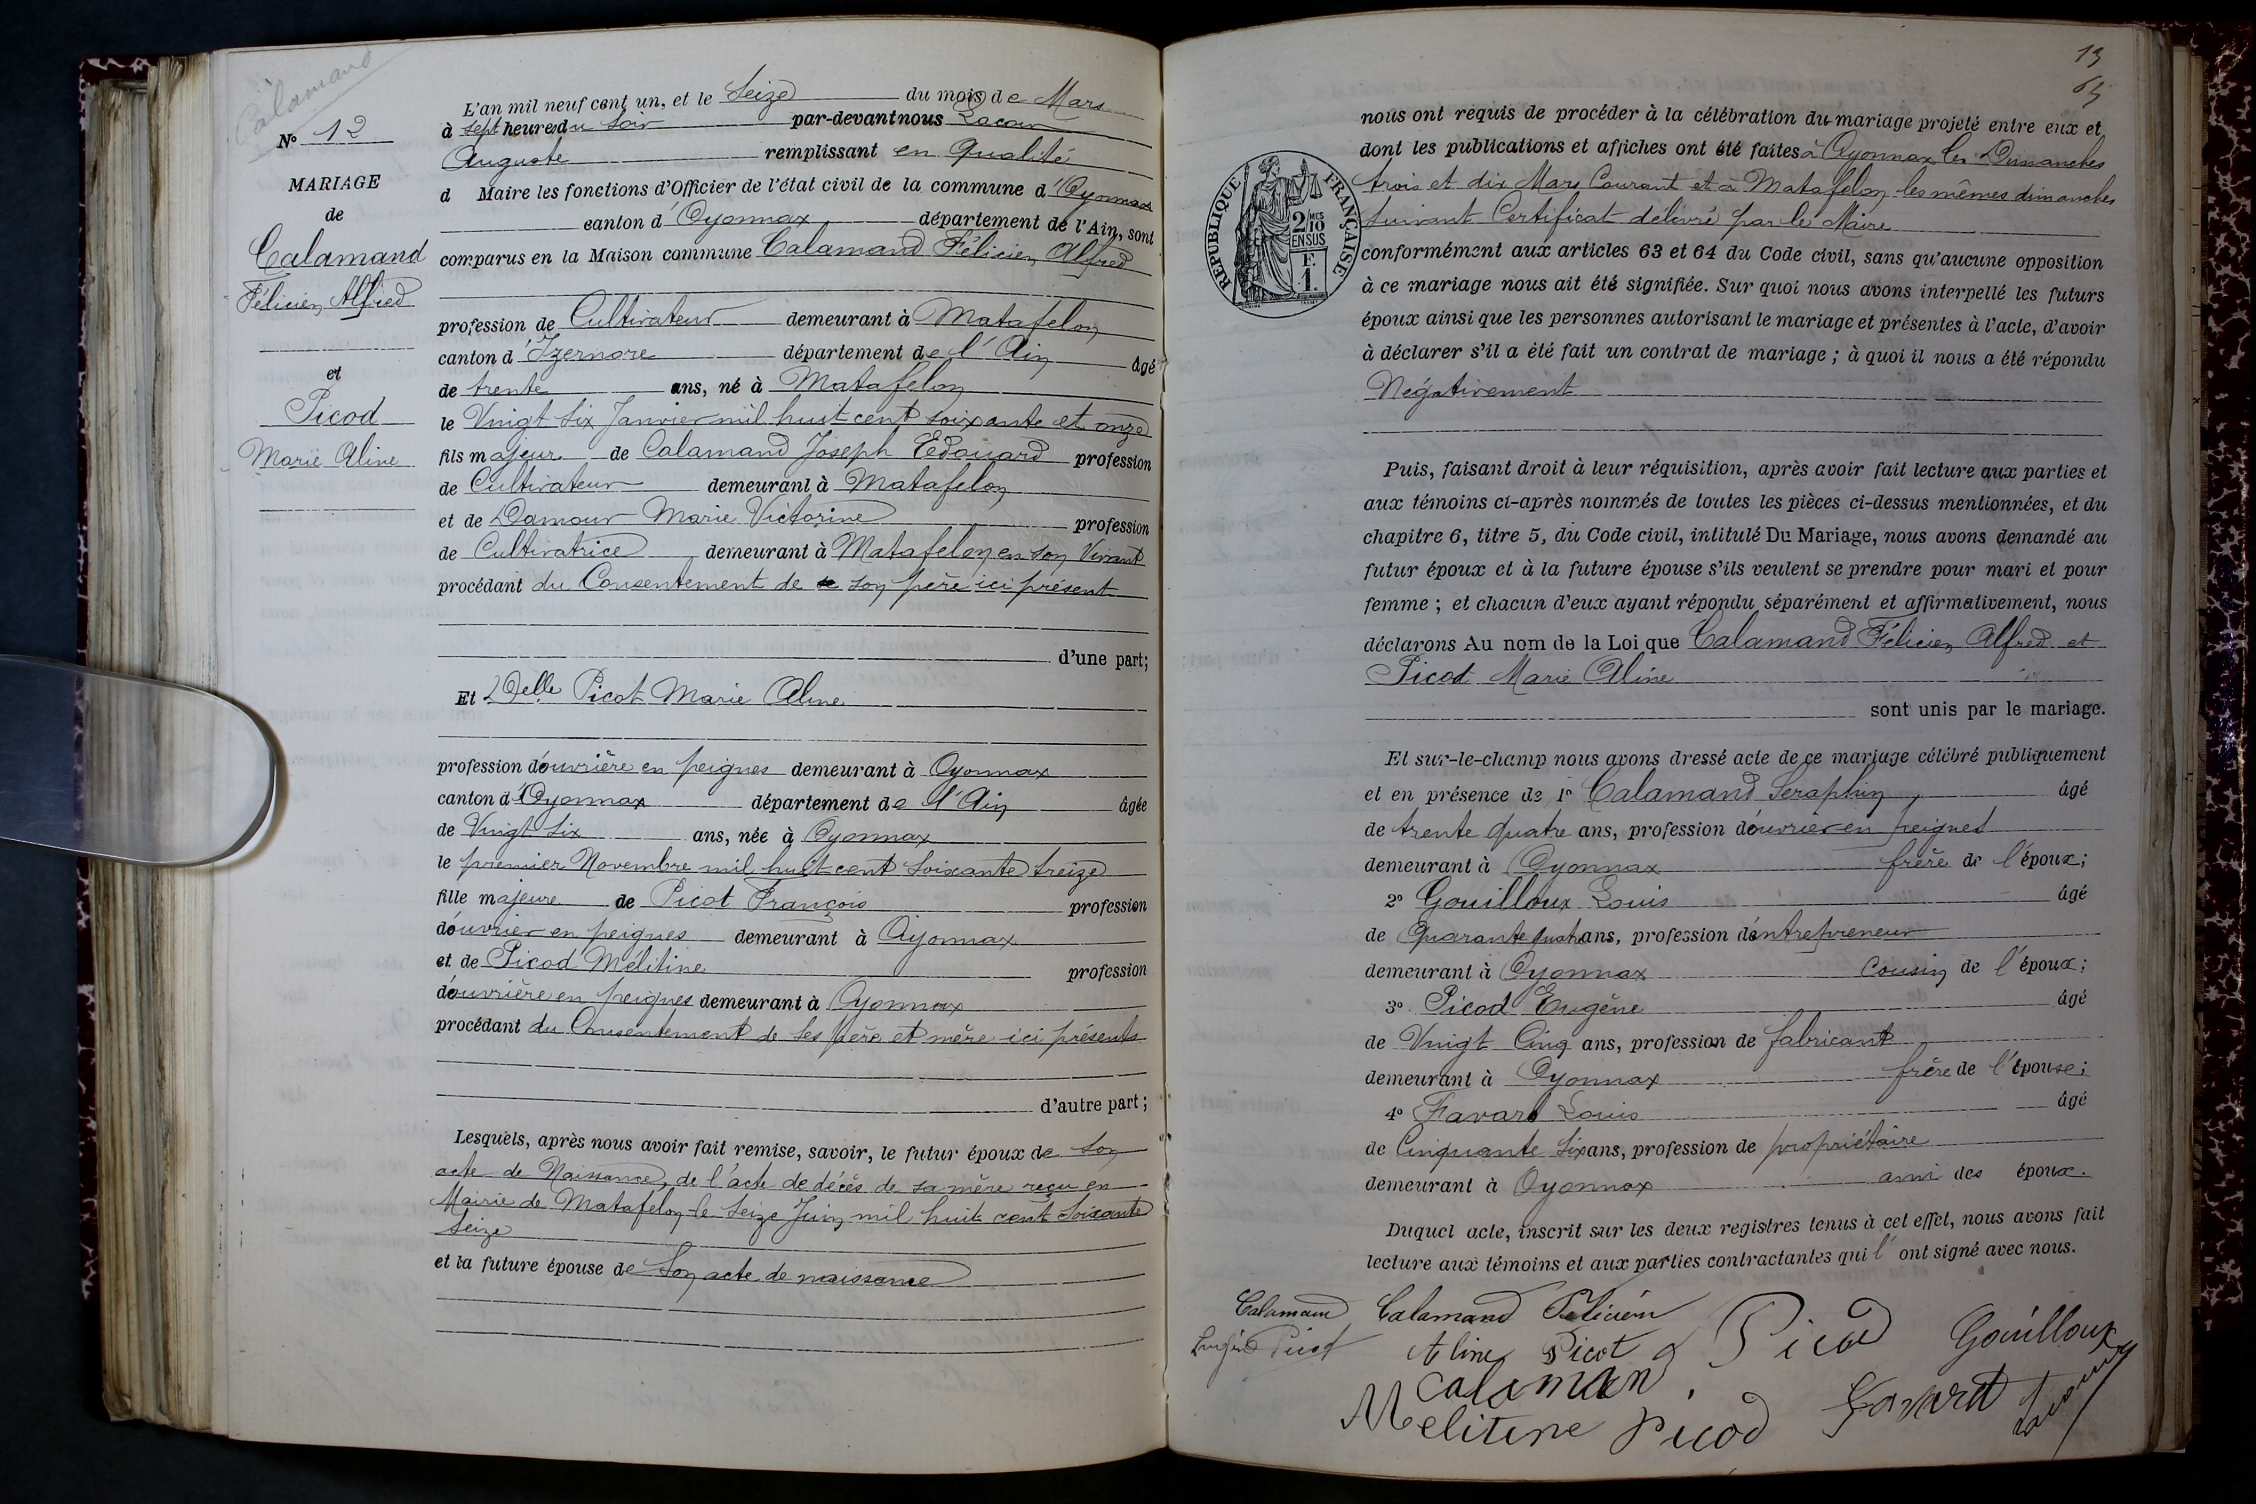 Calamand
Nº 12
MARIAGE
de
Calamand
Félicien Alfred
et
Picod
Marie Aline
L'an mil neuf cent un, et le Seize du mois de Mars
à sept heures du Soir par-devant nous Lacour
Auguste remplissant en Qualité
d Maire les fonctions d'Officier de l'état civil de la commune d'Oyonnax
canton d'Oyonnax département de l'Ain, sont
comparus en la Maison commune Calamand Félicien Alfred
profession de Cultivateur demeurant à Matafelon
canton d'Izernore département de l'Ain âgé
de trente ans, né à Matafelon
le Vingt Six Janvier mil huit cent soixante et onze
fils majeur de Calamand Joseph Edouard profession
de Cultivateur demeurant à Matafelon
et de Damour Marie Victorine profession
de Cultivatrice demeurant à Matafelon en son Vivant
procédant du Consentement de son père ici présent
d'une part;
Et Delle Picot Marie Aline
profession d'ouvrière en peignes demeurant à Oyonnax
canton d'Oyonnax département de l'Ain âgée
de Vingt Six ans, née à Oyonnax
le premier Novembre mil huit cent Soixante treize
fille majeure de Picot François profession
d'ouvrier en peignes demeurant à Oyonnax
et de Picod Mélitine profession
d'ouvrière en peignes demeurant à Oyonnax
procédant du Consentement de Ses père et mère ici présents
d'autre part;
Lesquels, après nous avoir fait remise, savoir, le futur époux de Son
acte de Naissance, de l'acte de décés de sa mère reçu en
Mairie de Matafelon le Seize Juin mil huit cent Soixante
Seize
et la future épouse de Son acte de naissance
13
65
nous ont requis de procéder à la célébration du mariage projeté entre eux et
dont les publications et affiches ont été faites à Oyonnax les Dimanches
trois et dix Mars Courant et à Matafelon les mêmes dimanches
Suivant Certificat délivré par le Maire
RÉPUBLIQUE FRANÇAISE
2 MES 10 EN SUS
F. 1.
conformément aux articles 63 et 64 du Code civil, sans qu'aucune opposition
à ce mariage nous ait été signifiée. Sur quoi nous avons interpellé les futurs
époux ainsi que les personnes autorisant le mariage et présentes à l'acte, d'avoir
à déclarer s'il a été fait un contrat de mariage ; à quoi il nous a été répondu
Négativement
Puis, faisant droit à leur réquisition, après avoir fait lecture aux parties et
aux témoins ci-après nommés de toutes les pièces ci-dessus mentionnées, et du
chapitre 6, titre 5, du Code civil, intitulé Du Mariage, nous avons demandé au
futur époux et à la future épouse s'ils veulent se prendre pour mari et pour
femme ; et chacun d'eux ayant répondu séparément et affirmativement, nous
déclarons Au nom de la Loi que Calamand Félicien Alfred et
Picod Marie Aline
sont unis par le mariage.
Et sur-le-champ nous avons dressé acte de ce mariage célébré publiquement
et en présence de 1º Calamand Seraphin, âgé
de trente quatre ans, profession d'ouvrier en peignes
demeurant à Oyonnax frère de l'époux;
2º Gouilloux Louis âgé
de Quarante quatre ans, profession d'entrepreneur
demeurant à Oyonnax Cousin de l'époux;
3º Picod Eugène âgé
de Vingt Cinq ans, profession de fabricant
demeurant à Oyonnax frère de l'épouse;
4º Favard Louis âgé
de Cinquante Six ans, profession de propriétaire
demeurant à Oyonnax ami des époux.
Duquel acte, inscrit sur les deux registres tenus à cet effet, nous avons fait
lecture aux témoins et aux parties contractantes qui l'ont signé avec nous.
Calamand Calamand Félicien Picod Gouilloux
Eugène Picot Aline Picot
Calaman Favard
Melitine Picod